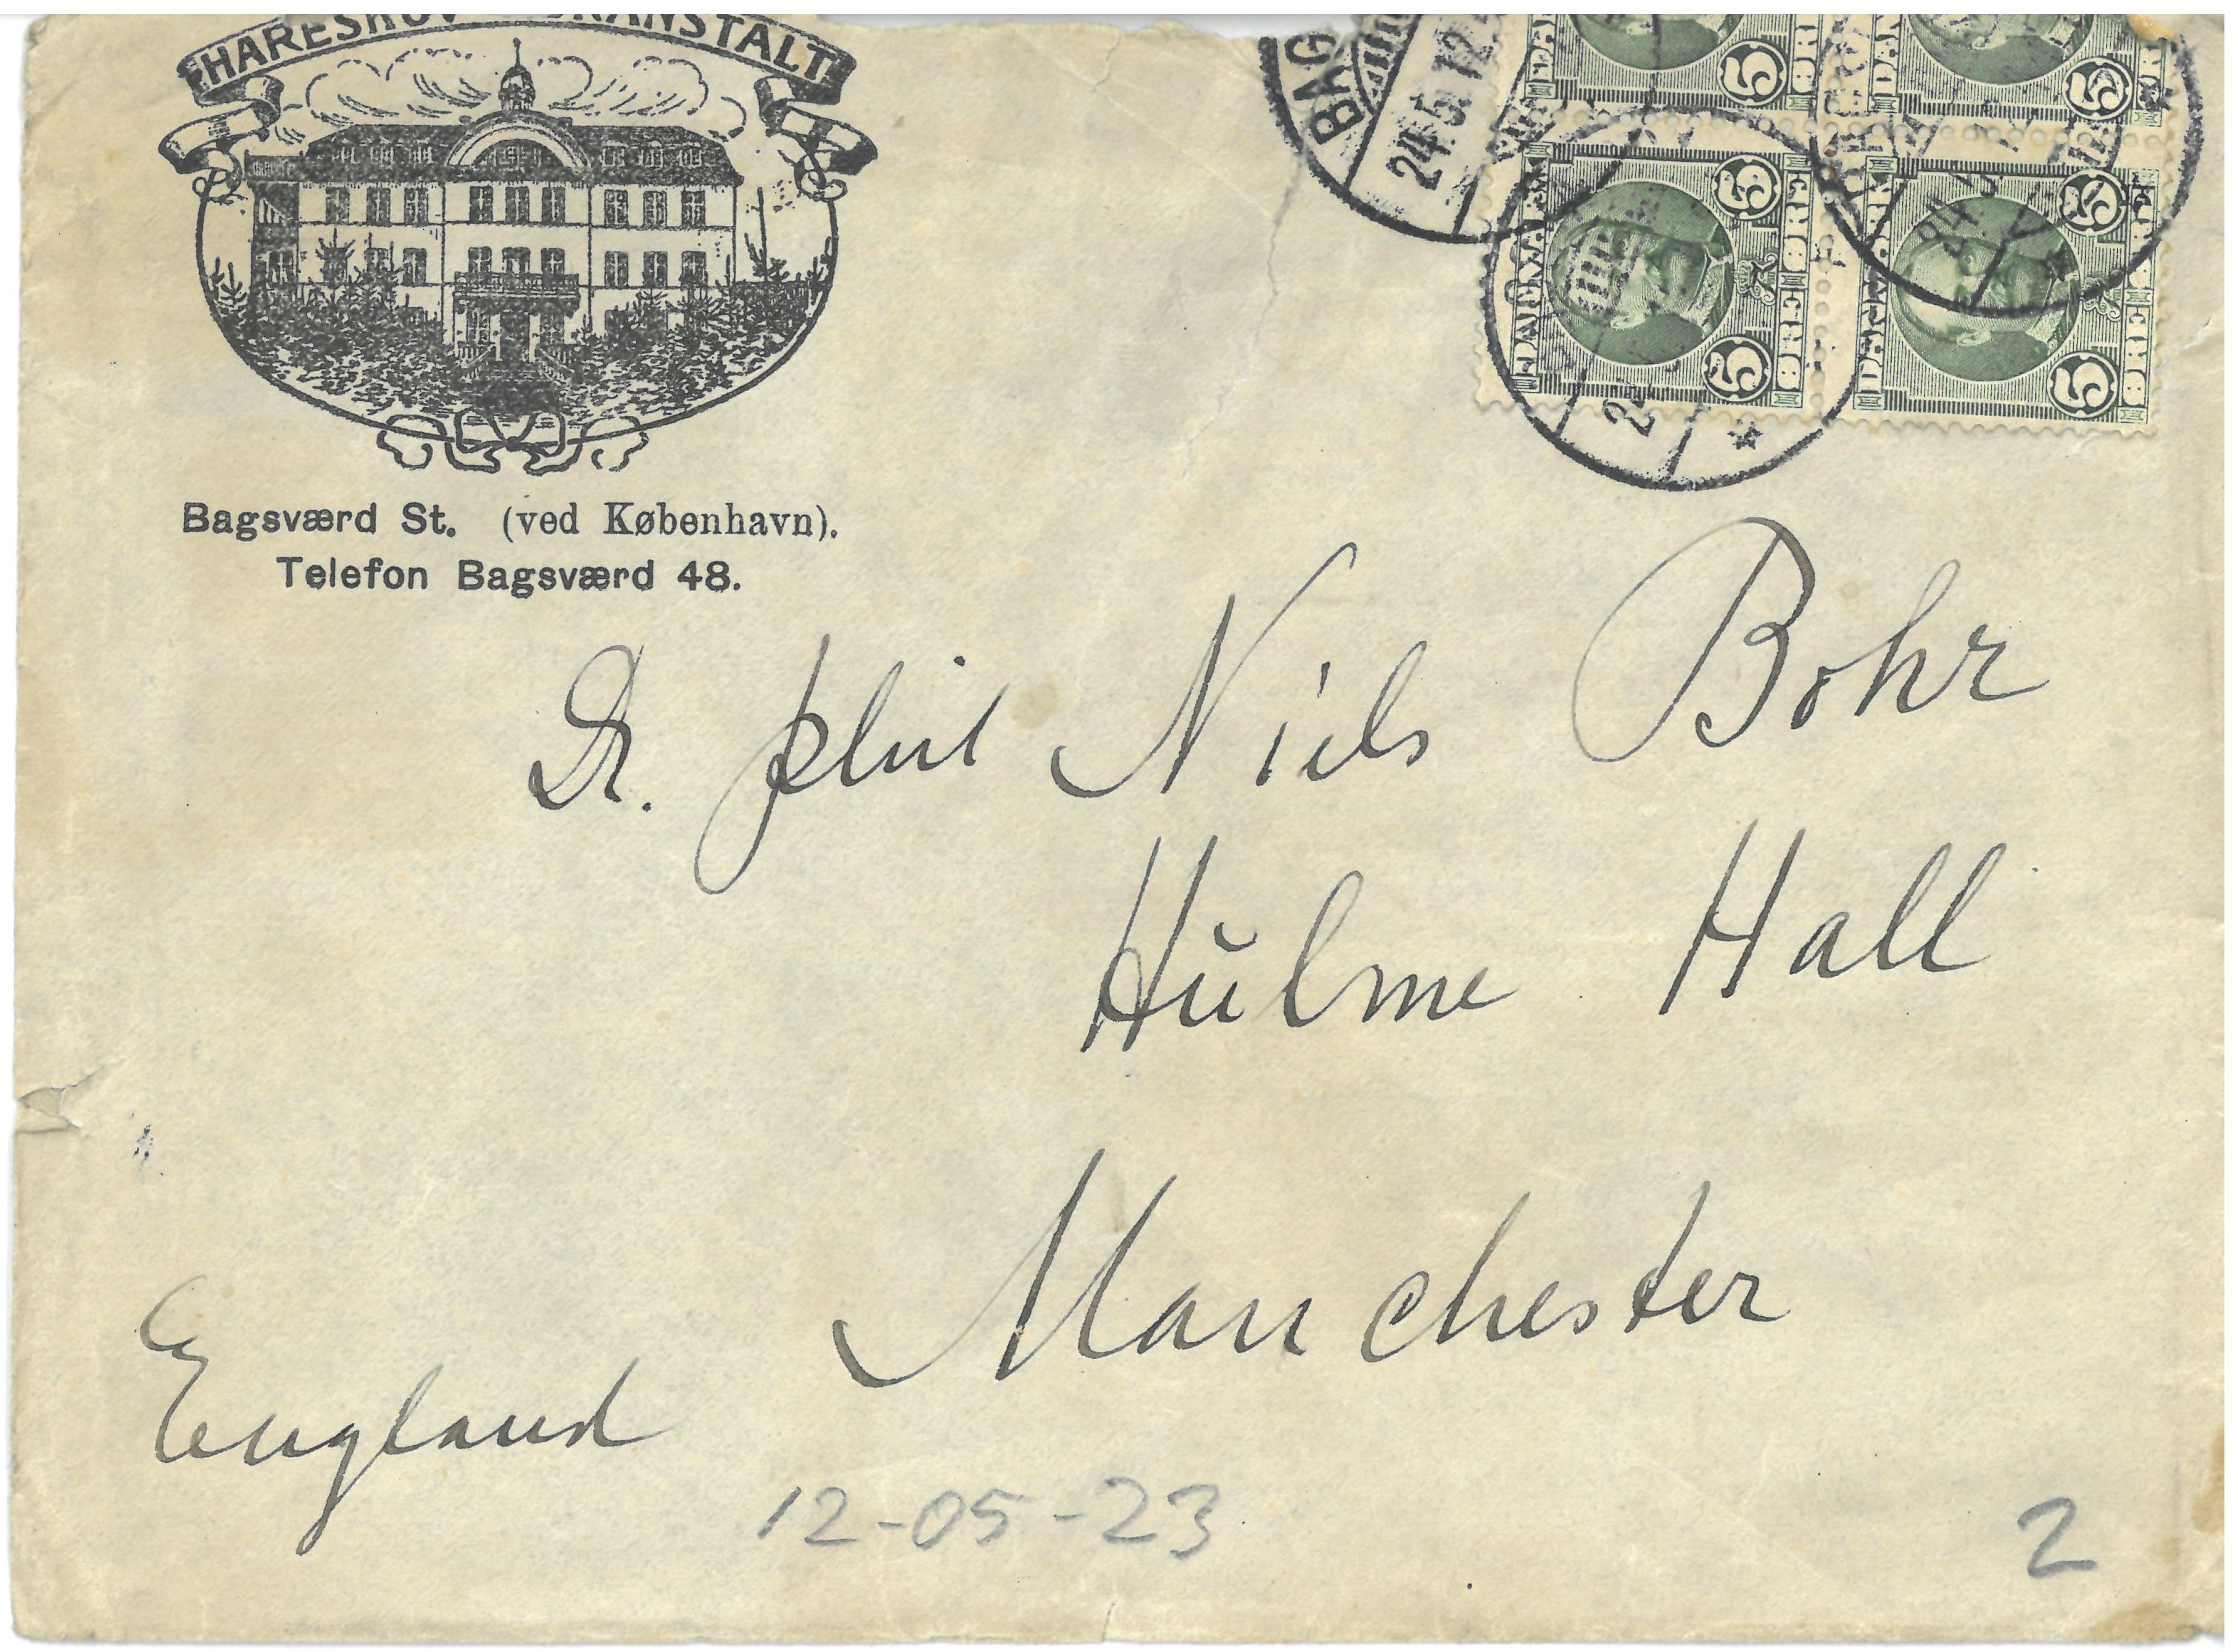 HARESKOV KURANSTALT
Bagsværd St. (ved København).
Telefon Bagsværd 48.
BAG
24.5.12
DANMARK 5 5 ØRE
DANMARK 5 5 ØRE
Dr. phil Niels Bohr
Hulme Hall
Manchester
England
12-05-23
2